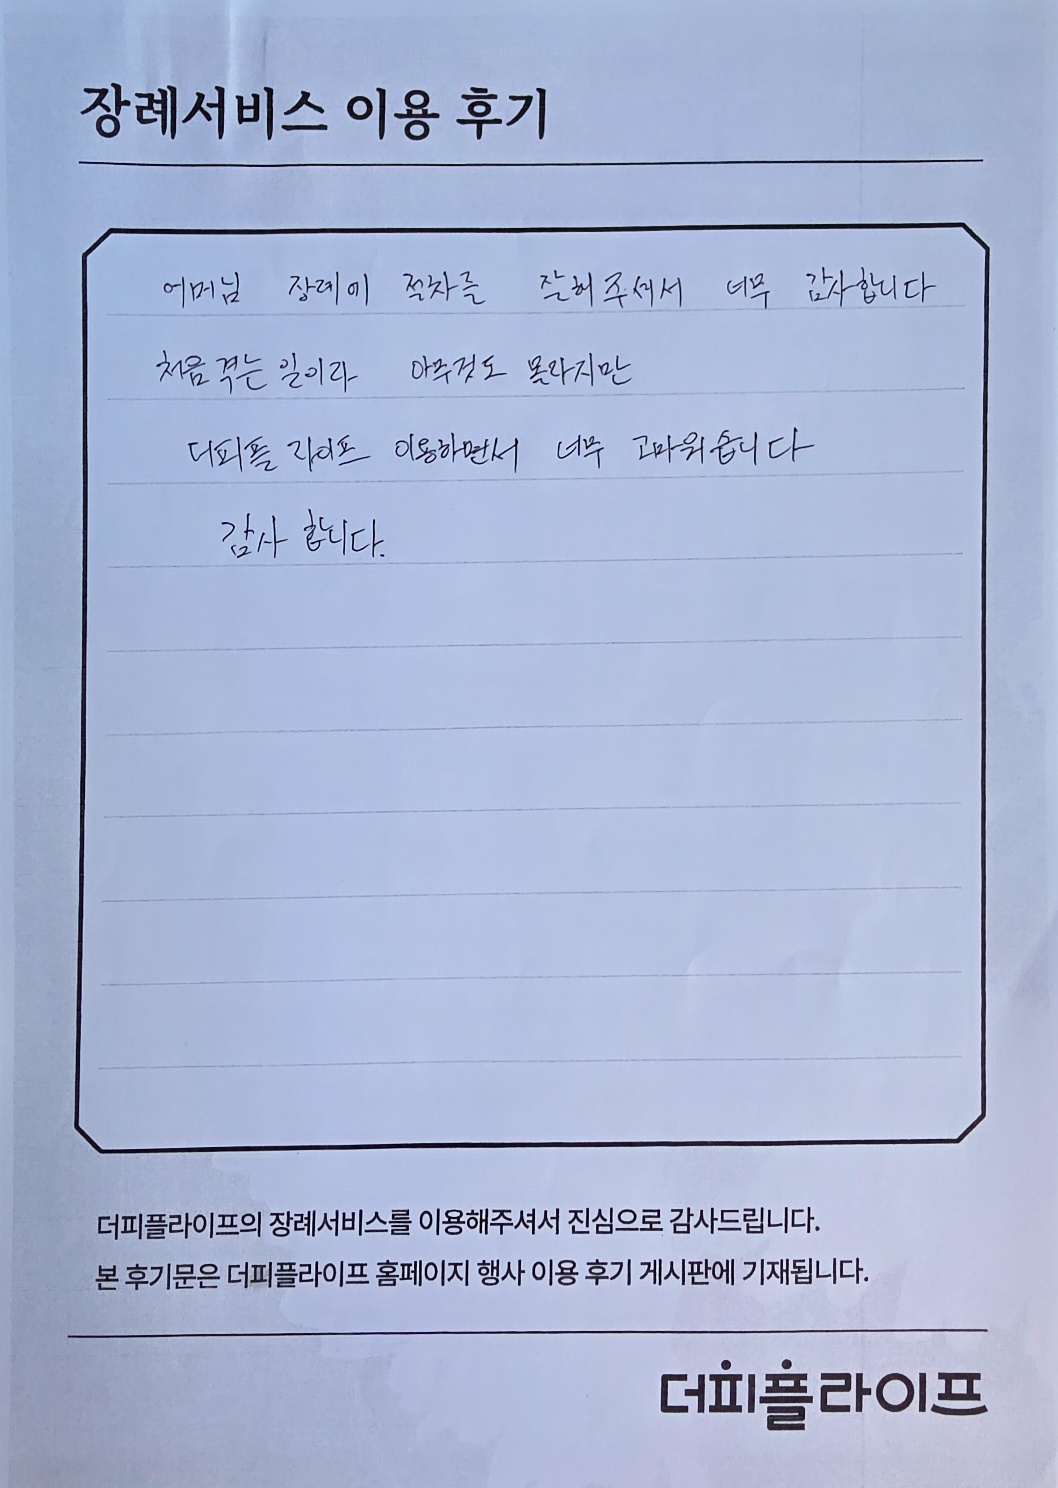 장례서비스 이용 후기
어머님 장례에 절차를 잘해주셔서 너무 감사합니다
처음 겪는 일이라 아무것도 몰라지만
더피플 라이프 이용하면서 너무 고마워습니다
감사 합니다.
더피플라이프의 장례서비스를 이용해주셔서 진심으로 감사드립니다.
본 후기문은 더피플라이프 홈페이지 행사 이용 후기 게시판에 기재됩니다.
더피플라이프